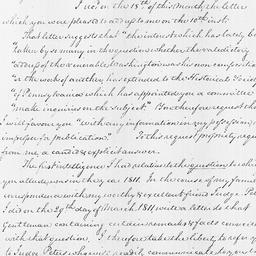 I rec'd on the 18th of this March the letter
which you were pleased to address to me on the 10th inst.
That letter suggests that "the interest which has lately been
taken by so many in the question whether the valedictory
address of the venerable Washington was his own composition
or the work of another, has extended to the Historical Society
of Pennsylvania which has appointed you a committee
"to make inquiries on the subject." You therefore request that
I will favour you "with any information in my possession
improper for publication." To this request propriety requires
from me a candid & explicit answer.
The first intelligence I had relative to the question to which
you allude, was in the year 1811. In the course of my familiar
correspondence with my worthy & excellent friend Judge Peters
I did on the 29th day of March 1811 write a letter to that
Gentleman containing certain remarks & facts connected
with that question. I therefore take the liberty to refer you
to Judge Peters who will readily communicate